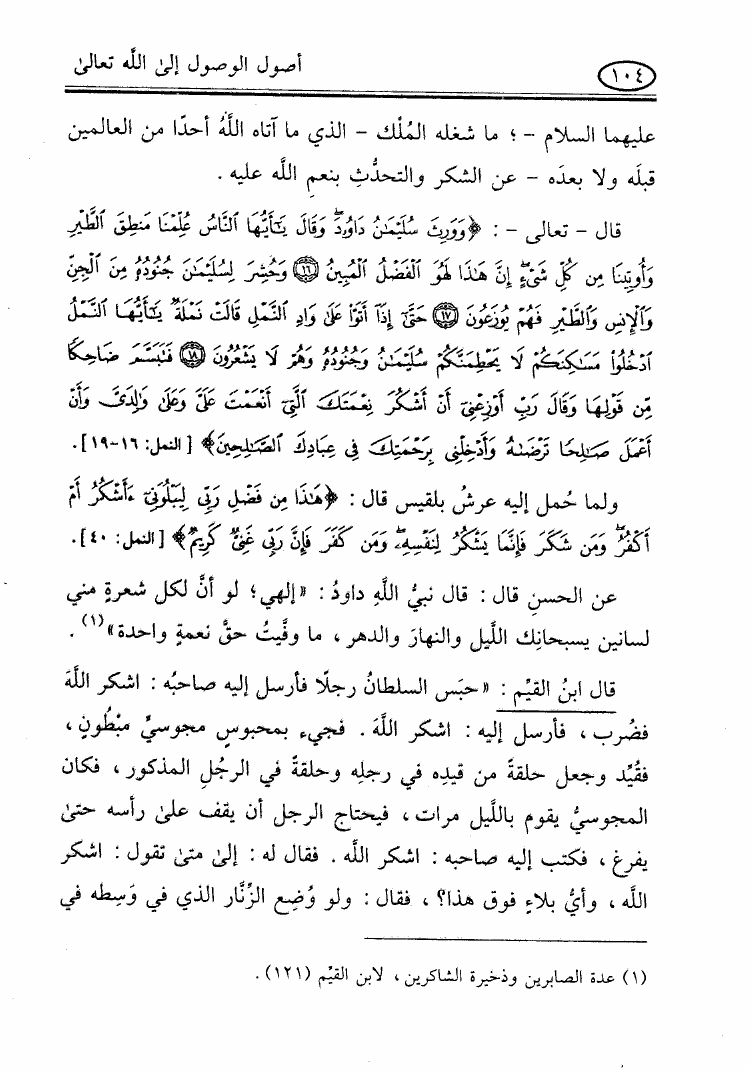 ١٠٤
أصول الوصول إلى اللَّه تعالىٰ
عليهما السلام - ؛ ما شغله المُلْك - الذي ما آتاه اللَّهُ أحدًا من العالمين
قبلَه ولا بعدَه - عن الشكر والتحدُّثِ بنعمِ اللَّه عليه .
قال - تعالى - : ﴿وَوَرِثَ سُلَيْمَٰنُ دَاوُۥدَۖ وَقَالَ يَٰٓأَيُّهَا ٱلنَّاسُ عُلِّمْنَا مَنطِقَ ٱلطَّيْرِ
وَأُوتِينَا مِن كُلِّ شَىْءٍۖ إِنَّ هَٰذَا لَهُوَ ٱلْفَضْلُ ٱلْمُبِينُ ۝١٦ وَحُشِرَ لِسُلَيْمَٰنَ جُنُودُهُۥ مِنَ ٱلْجِنِّ
وَٱلْإِنسِ وَٱلطَّيْرِ فَهُمْ يُوزَعُونَ ۝١٧ حَتَّىٰٓ إِذَآ أَتَوْا۟ عَلَىٰ وَادِ ٱلنَّمْلِ قَالَتْ نَمْلَةٌ يَٰٓأَيُّهَا ٱلنَّمْلُ
ٱدْخُلُوا۟ مَسَٰكِنَكُمْ لَا يَحْطِمَنَّكُمْ سُلَيْمَٰنُ وَجُنُودُهُۥ وَهُمْ لَا يَشْعُرُونَ ۝١٨ فَتَبَسَّمَ ضَاحِكًا
مِّن قَوْلِهَا وَقَالَ رَبِّ أَوْزِعْنِىٓ أَنْ أَشْكُرَ نِعْمَتَكَ ٱلَّتِىٓ أَنْعَمْتَ عَلَىَّ وَعَلَىٰ وَٰلِدَىَّ وَأَنْ
أَعْمَلَ صَٰلِحًا تَرْضَىٰهُ وَأَدْخِلْنِى بِرَحْمَتِكَ فِى عِبَادِكَ ٱلصَّٰلِحِينَ﴾ [النمل: ١٦-١٩].
ولما حُمل إليه عرشُ بلقيس قال : ﴿هَٰذَا مِن فَضْلِ رَبِّى لِيَبْلُوَنِىٓ ءَأَشْكُرُ أَمْ
أَكْفُرُۖ وَمَن شَكَرَ فَإِنَّمَا يَشْكُرُ لِنَفْسِهِۦۖ وَمَن كَفَرَ فَإِنَّ رَبِّى غَنِىٌّ كَرِيمٌ﴾ [النمل: ٤٠].
عن الحسنِ قال : قال نبيُّ اللَّهِ داودُ : «إلهي؛ لو أنَّ لكل شعرةٍ مني
لسانين يسبحانِك اللَّيل والنهارَ والدهر ، ما وفَّيتُ حقَّ نعمةٍ واحدة»(١) .
قال ابنُ القيِّم : «حبَس السلطانُ رجلًا فأرسل إليه صاحبُه : اشكر اللَّهَ
فضُرب ، فأرسل إليه : اشكر اللَّهَ . فجيء بمحبوسٍ مجوسيٍّ مبْطُونٍ ،
فقُيِّد وجعل حلقةً من قيدِه في رجلِه وحلقةً في الرجُلِ المذكور ، فكان
المجوسيُّ يقوم باللَّيل مرات ، فيحتاج الرجل أن يقف علىٰ رأسه حتىٰ
يفرغ ، فكتب إليه صاحبه : اشكر اللَّه . فقال له : إلىٰ متىٰ تقول : اشكر
اللَّه ، وأيُّ بلاءٍ فوق هذا؟ ، فقال : ولو وُضِع الزِّنَّار الذي في وَسِطه في
(١) عدة الصابرين وذخيرة الشاكرين ، لابن القيِّم (١٢١).